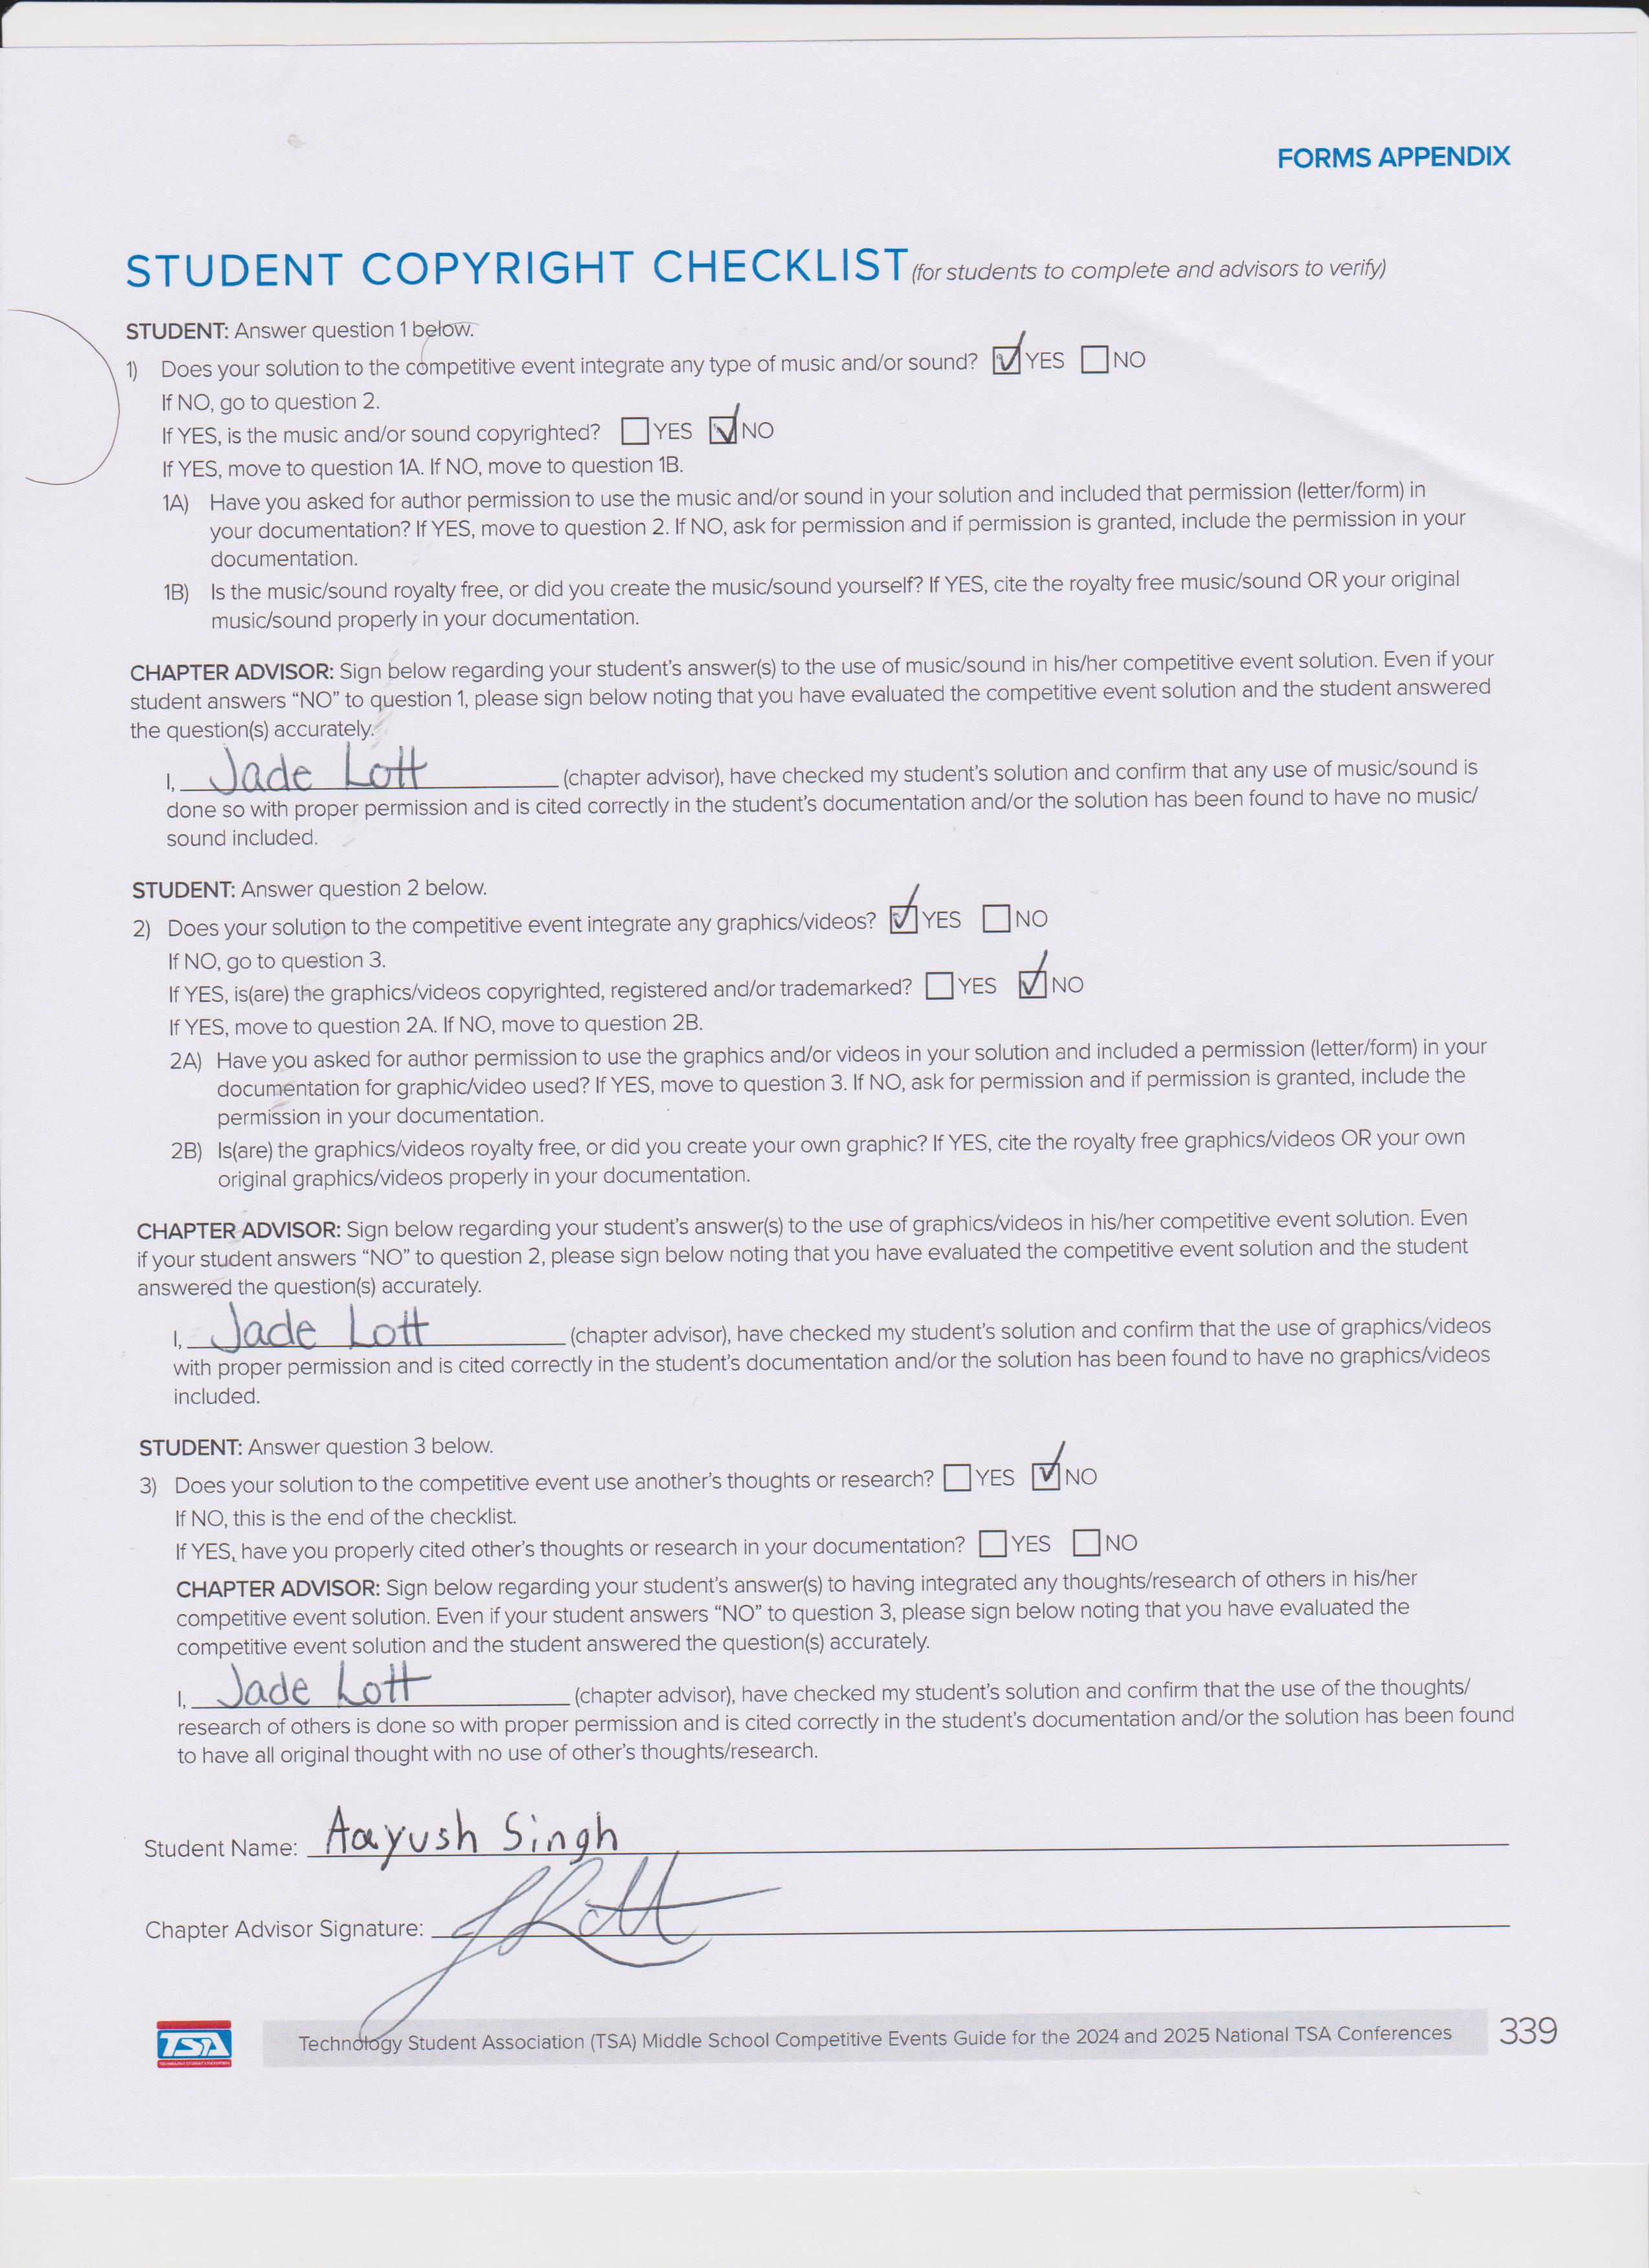 FORMS APPENDIX
STUDENT COPYRIGHT CHECKLIST (for students to complete and advisors to verify)
STUDENT: Answer question 1 below.
1) Does your solution to the competitive event integrate any type of music and/or sound? ☑ YES ☐ NO
If NO, go to question 2.
If YES, is the music and/or sound copyrighted? ☐ YES ☑ NO
If YES, move to question 1A. If NO, move to question 1B.
1A) Have you asked for author permission to use the music and/or sound in your solution and included that permission (letter/form) in
your documentation? If YES, move to question 2. If NO, ask for permission and if permission is granted, include the permission in your
documentation.
1B) Is the music/sound royalty free, or did you create the music/sound yourself? If YES, cite the royalty free music/sound OR your original
music/sound properly in your documentation.
CHAPTER ADVISOR: Sign below regarding your student's answer(s) to the use of music/sound in his/her competitive event solution. Even if your
student answers "NO" to question 1, please sign below noting that you have evaluated the competitive event solution and the student answered
the question(s) accurately.
I, Jade Lott (chapter advisor), have checked my student's solution and confirm that any use of music/sound is
done so with proper permission and is cited correctly in the student's documentation and/or the solution has been found to have no music/
sound included.
STUDENT: Answer question 2 below.
2) Does your solution to the competitive event integrate any graphics/videos? ☑ YES ☐ NO
If NO, go to question 3.
If YES, is(are) the graphics/videos copyrighted, registered and/or trademarked? ☐ YES ☑ NO
If YES, move to question 2A. If NO, move to question 2B.
2A) Have you asked for author permission to use the graphics and/or videos in your solution and included a permission (letter/form) in your
documentation for graphic/video used? If YES, move to question 3. If NO, ask for permission and if permission is granted, include the
permission in your documentation.
2B) Is(are) the graphics/videos royalty free, or did you create your own graphic? If YES, cite the royalty free graphics/videos OR your own
original graphics/videos properly in your documentation.
CHAPTER ADVISOR: Sign below regarding your student's answer(s) to the use of graphics/videos in his/her competitive event solution. Even
if your student answers "NO" to question 2, please sign below noting that you have evaluated the competitive event solution and the student
answered the question(s) accurately.
I, Jade Lott (chapter advisor), have checked my student's solution and confirm that the use of graphics/videos
with proper permission and is cited correctly in the student's documentation and/or the solution has been found to have no graphics/videos
included.
STUDENT: Answer question 3 below.
3) Does your solution to the competitive event use another's thoughts or research? ☐ YES ☑ NO
If NO, this is the end of the checklist.
If YES, have you properly cited other's thoughts or research in your documentation? ☐ YES ☐ NO
CHAPTER ADVISOR: Sign below regarding your student's answer(s) to having integrated any thoughts/research of others in his/her
competitive event solution. Even if your student answers "NO" to question 3, please sign below noting that you have evaluated the
competitive event solution and the student answered the question(s) accurately.
I, Jade Lott (chapter advisor), have checked my student's solution and confirm that the use of the thoughts/
research of others is done so with proper permission and is cited correctly in the student's documentation and/or the solution has been found
to have all original thought with no use of other's thoughts/research.
Student Name: Aayush Singh
Chapter Advisor Signature: J Lott
TSA
Technology Student Association (TSA) Middle School Competitive Events Guide for the 2024 and 2025 National TSA Conferences 339